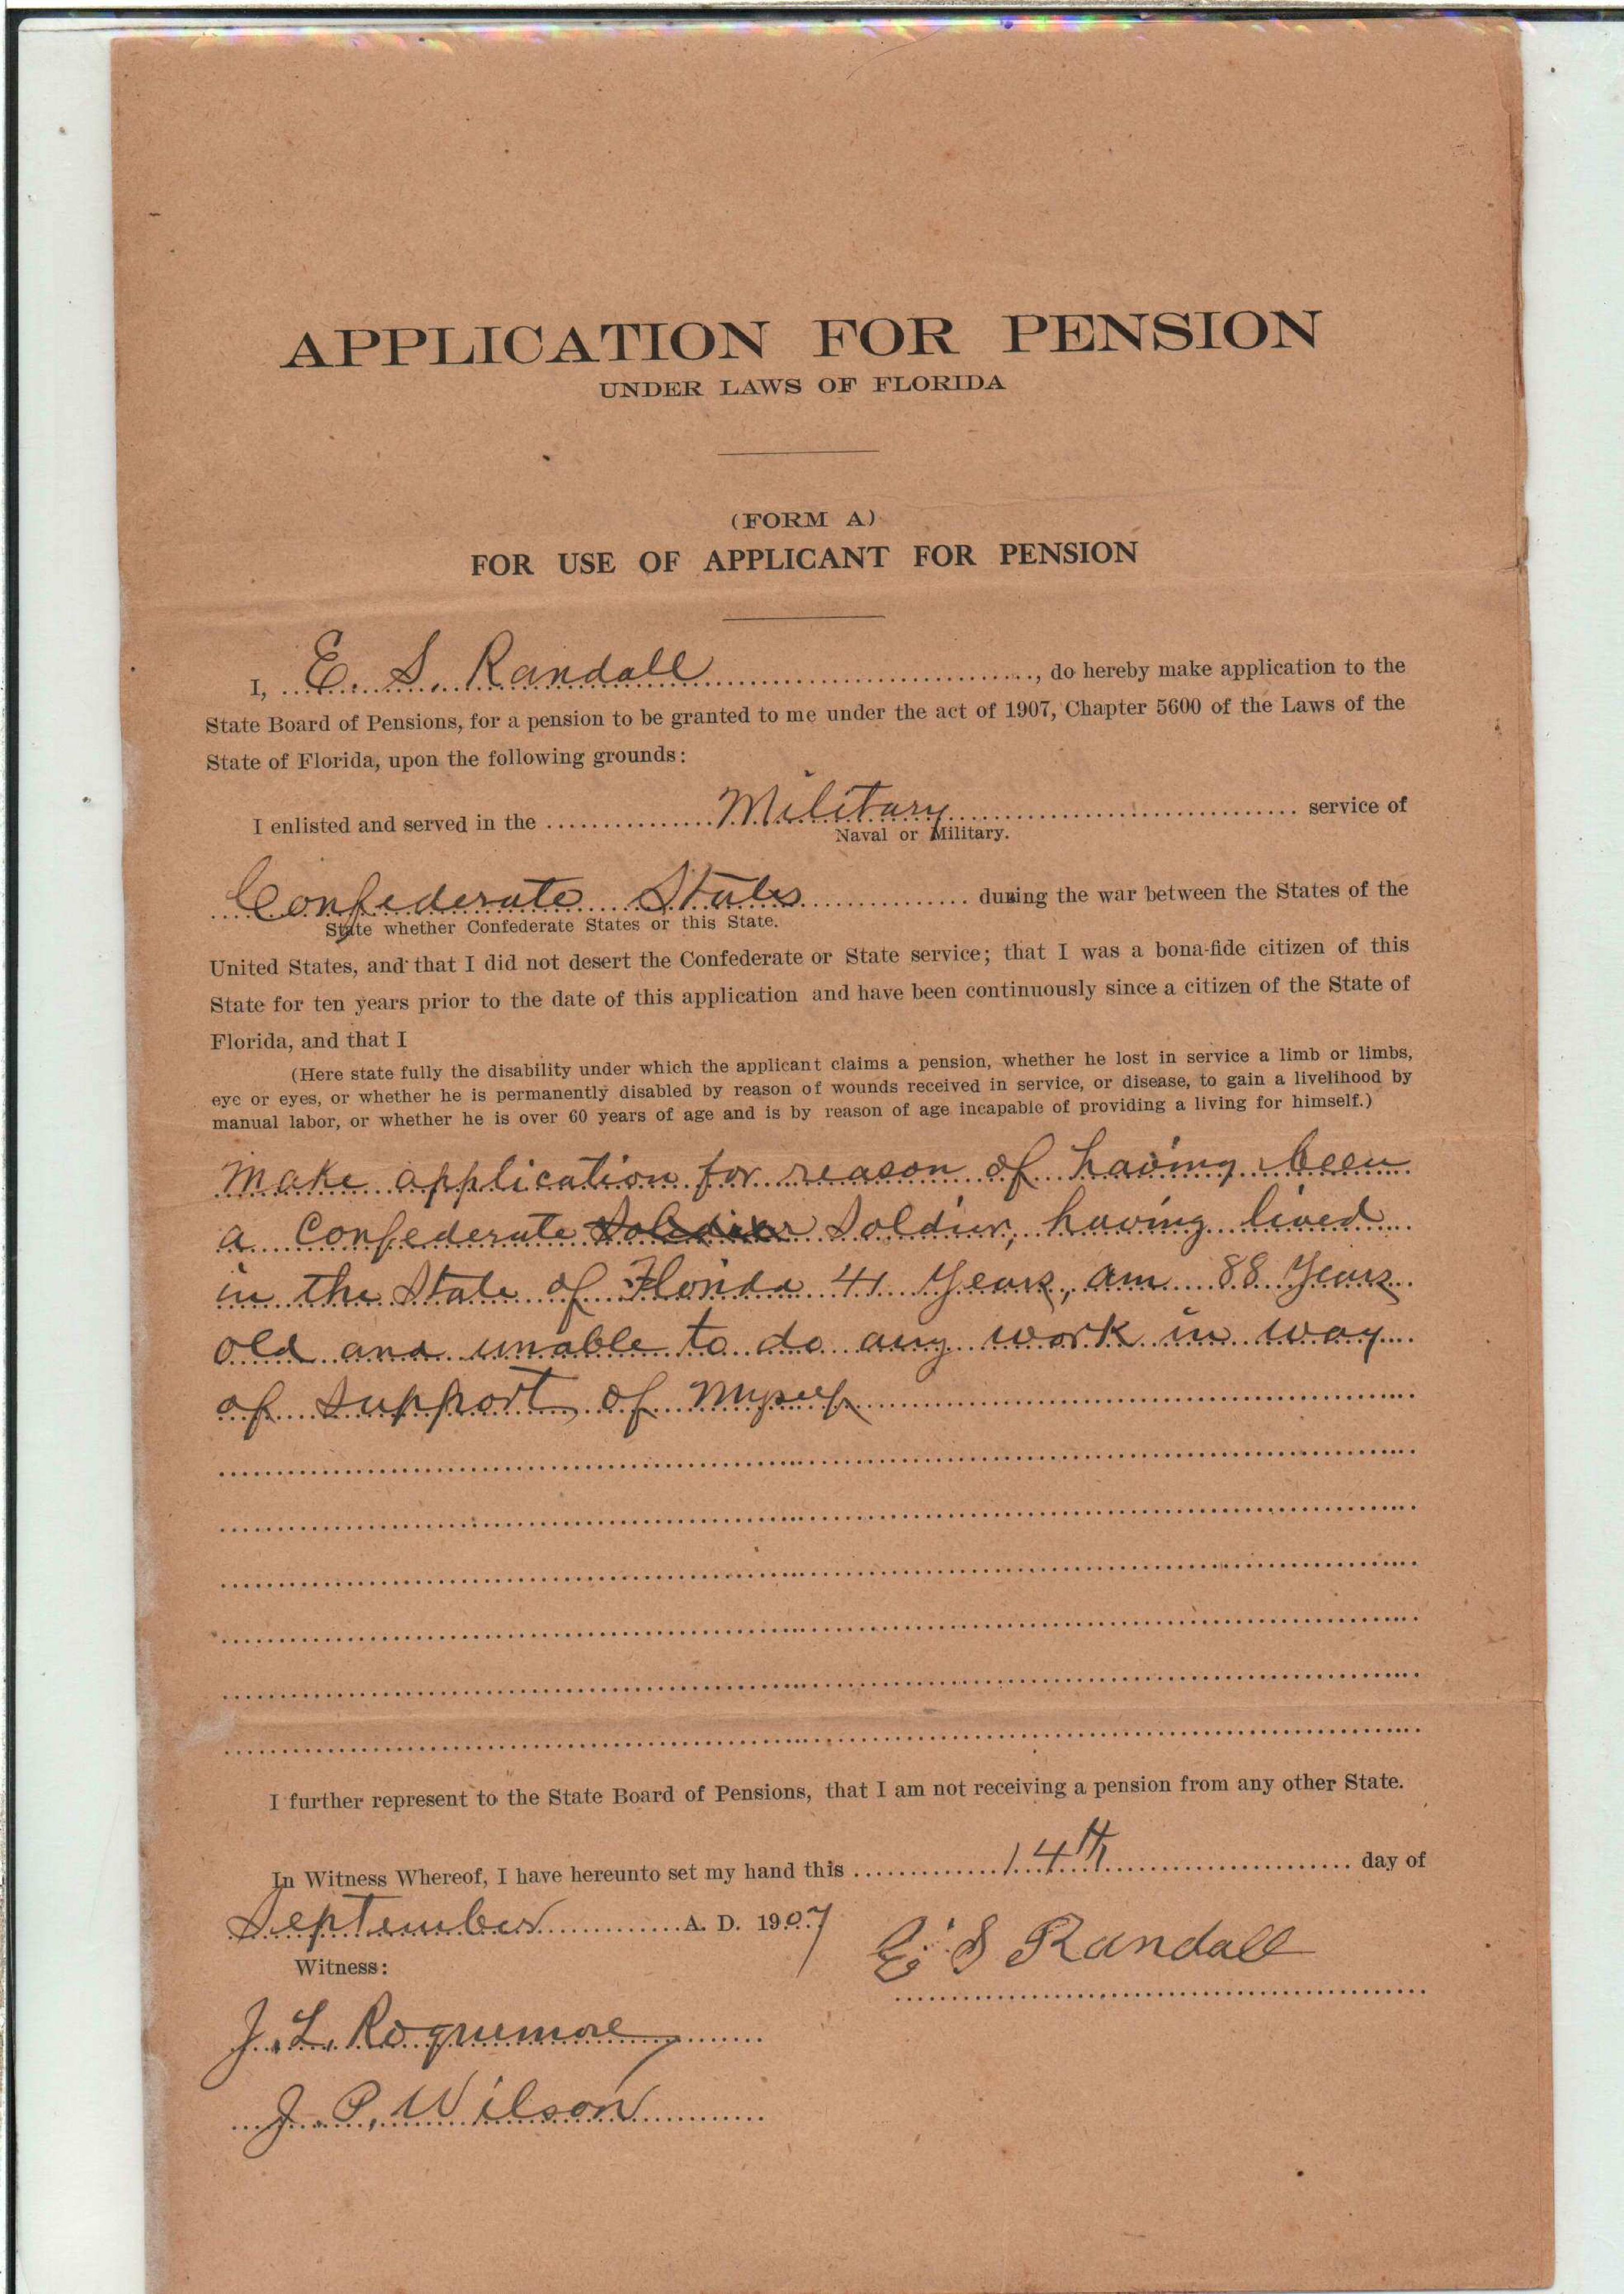 APPLICATION FOR PENSION
UNDER LAWS OF FLORIDA
(FORM A)
FOR USE OF APPLICANT FOR PENSION
I, E. S. Randall, do hereby make application to the
State Board of Pensions, for a pension to be granted to me under the act of 1907, Chapter 5600 of the Laws of the
State of Florida, upon the following grounds:
I enlisted and served in the Military service of
Naval or Military.
Confederate States during the war between the States of the
State whether Confederate States or this State.
United States, and that I did not desert the Confederate or State service; that I was a bona-fide citizen of this
State for ten years prior to the date of this application and have been continuously since a citizen of the State of
Florida, and that I
(Here state fully the disability under which the applicant claims a pension, whether he lost in service a limb or limbs,
eye or eyes, or whether he is permanently disabled by reason of wounds received in service, or disease, to gain a livelihood by
manual labor, or whether he is over 60 years of age and is by reason of age incapable of providing a living for himself.)
make application for reason of having been
a Confederate Soldier, having lived
in the State of Florida 41 Years, am 88 Years
old and unable to do any work in way
of Support of Myself
I further represent to the State Board of Pensions, that I am not receiving a pension from any other State.
In Witness Whereof, I have hereunto set my hand this 14th day of
September A. D. 1907
E. S Randall
Witness:
J. L. Roquemore
J. P. Wilson